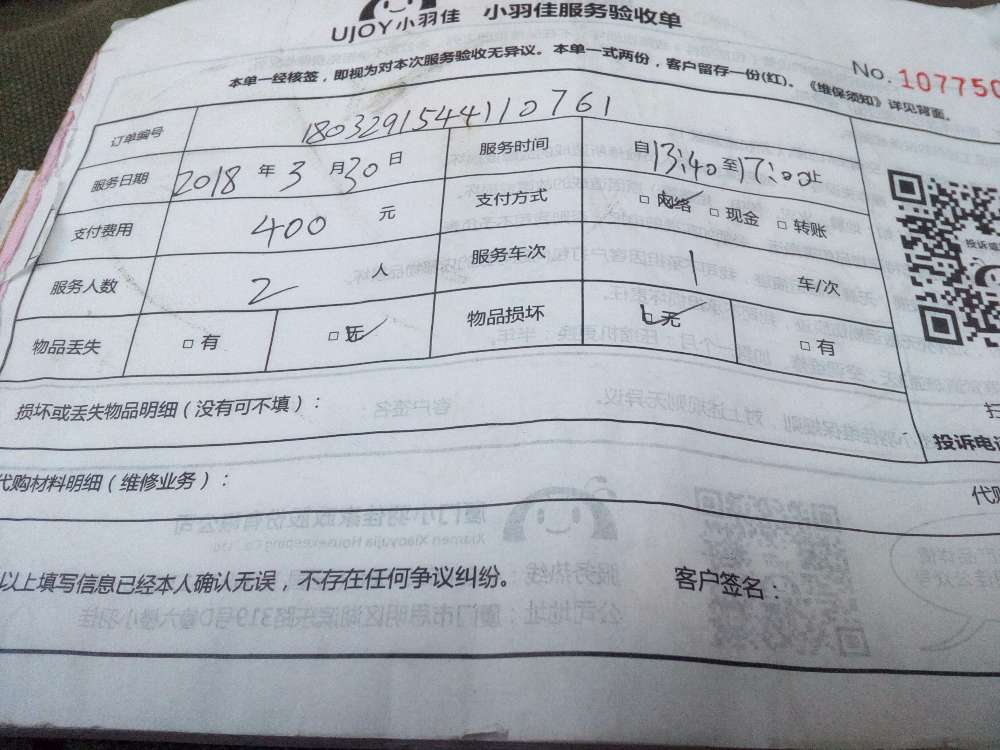 UJOY小羽佳 小羽佳服务验收单
本单一经核签，即视为对本次服务验收无异议。本单一式两份，客户留存一份(红)。《维保须知》详见背面。
No. 107750
订单编号 180329154411 0761
服务日期 2018 年 3 月 30 日 服务时间 自13:40至17:00止
支付费用 400 元 支付方式 □ 网络 □ 现金 □ 转账
服务人数 2 人 服务车次 1 车/次
物品丢失 □ 有 □ 无 物品损坏 □ 无 □ 有
损坏或丢失物品明细（没有可不填）：
投诉电话
代购材料明细（维修业务）： 代购
以上填写信息已经本人确认无误，不存在任何争议纠纷。 客户签名：